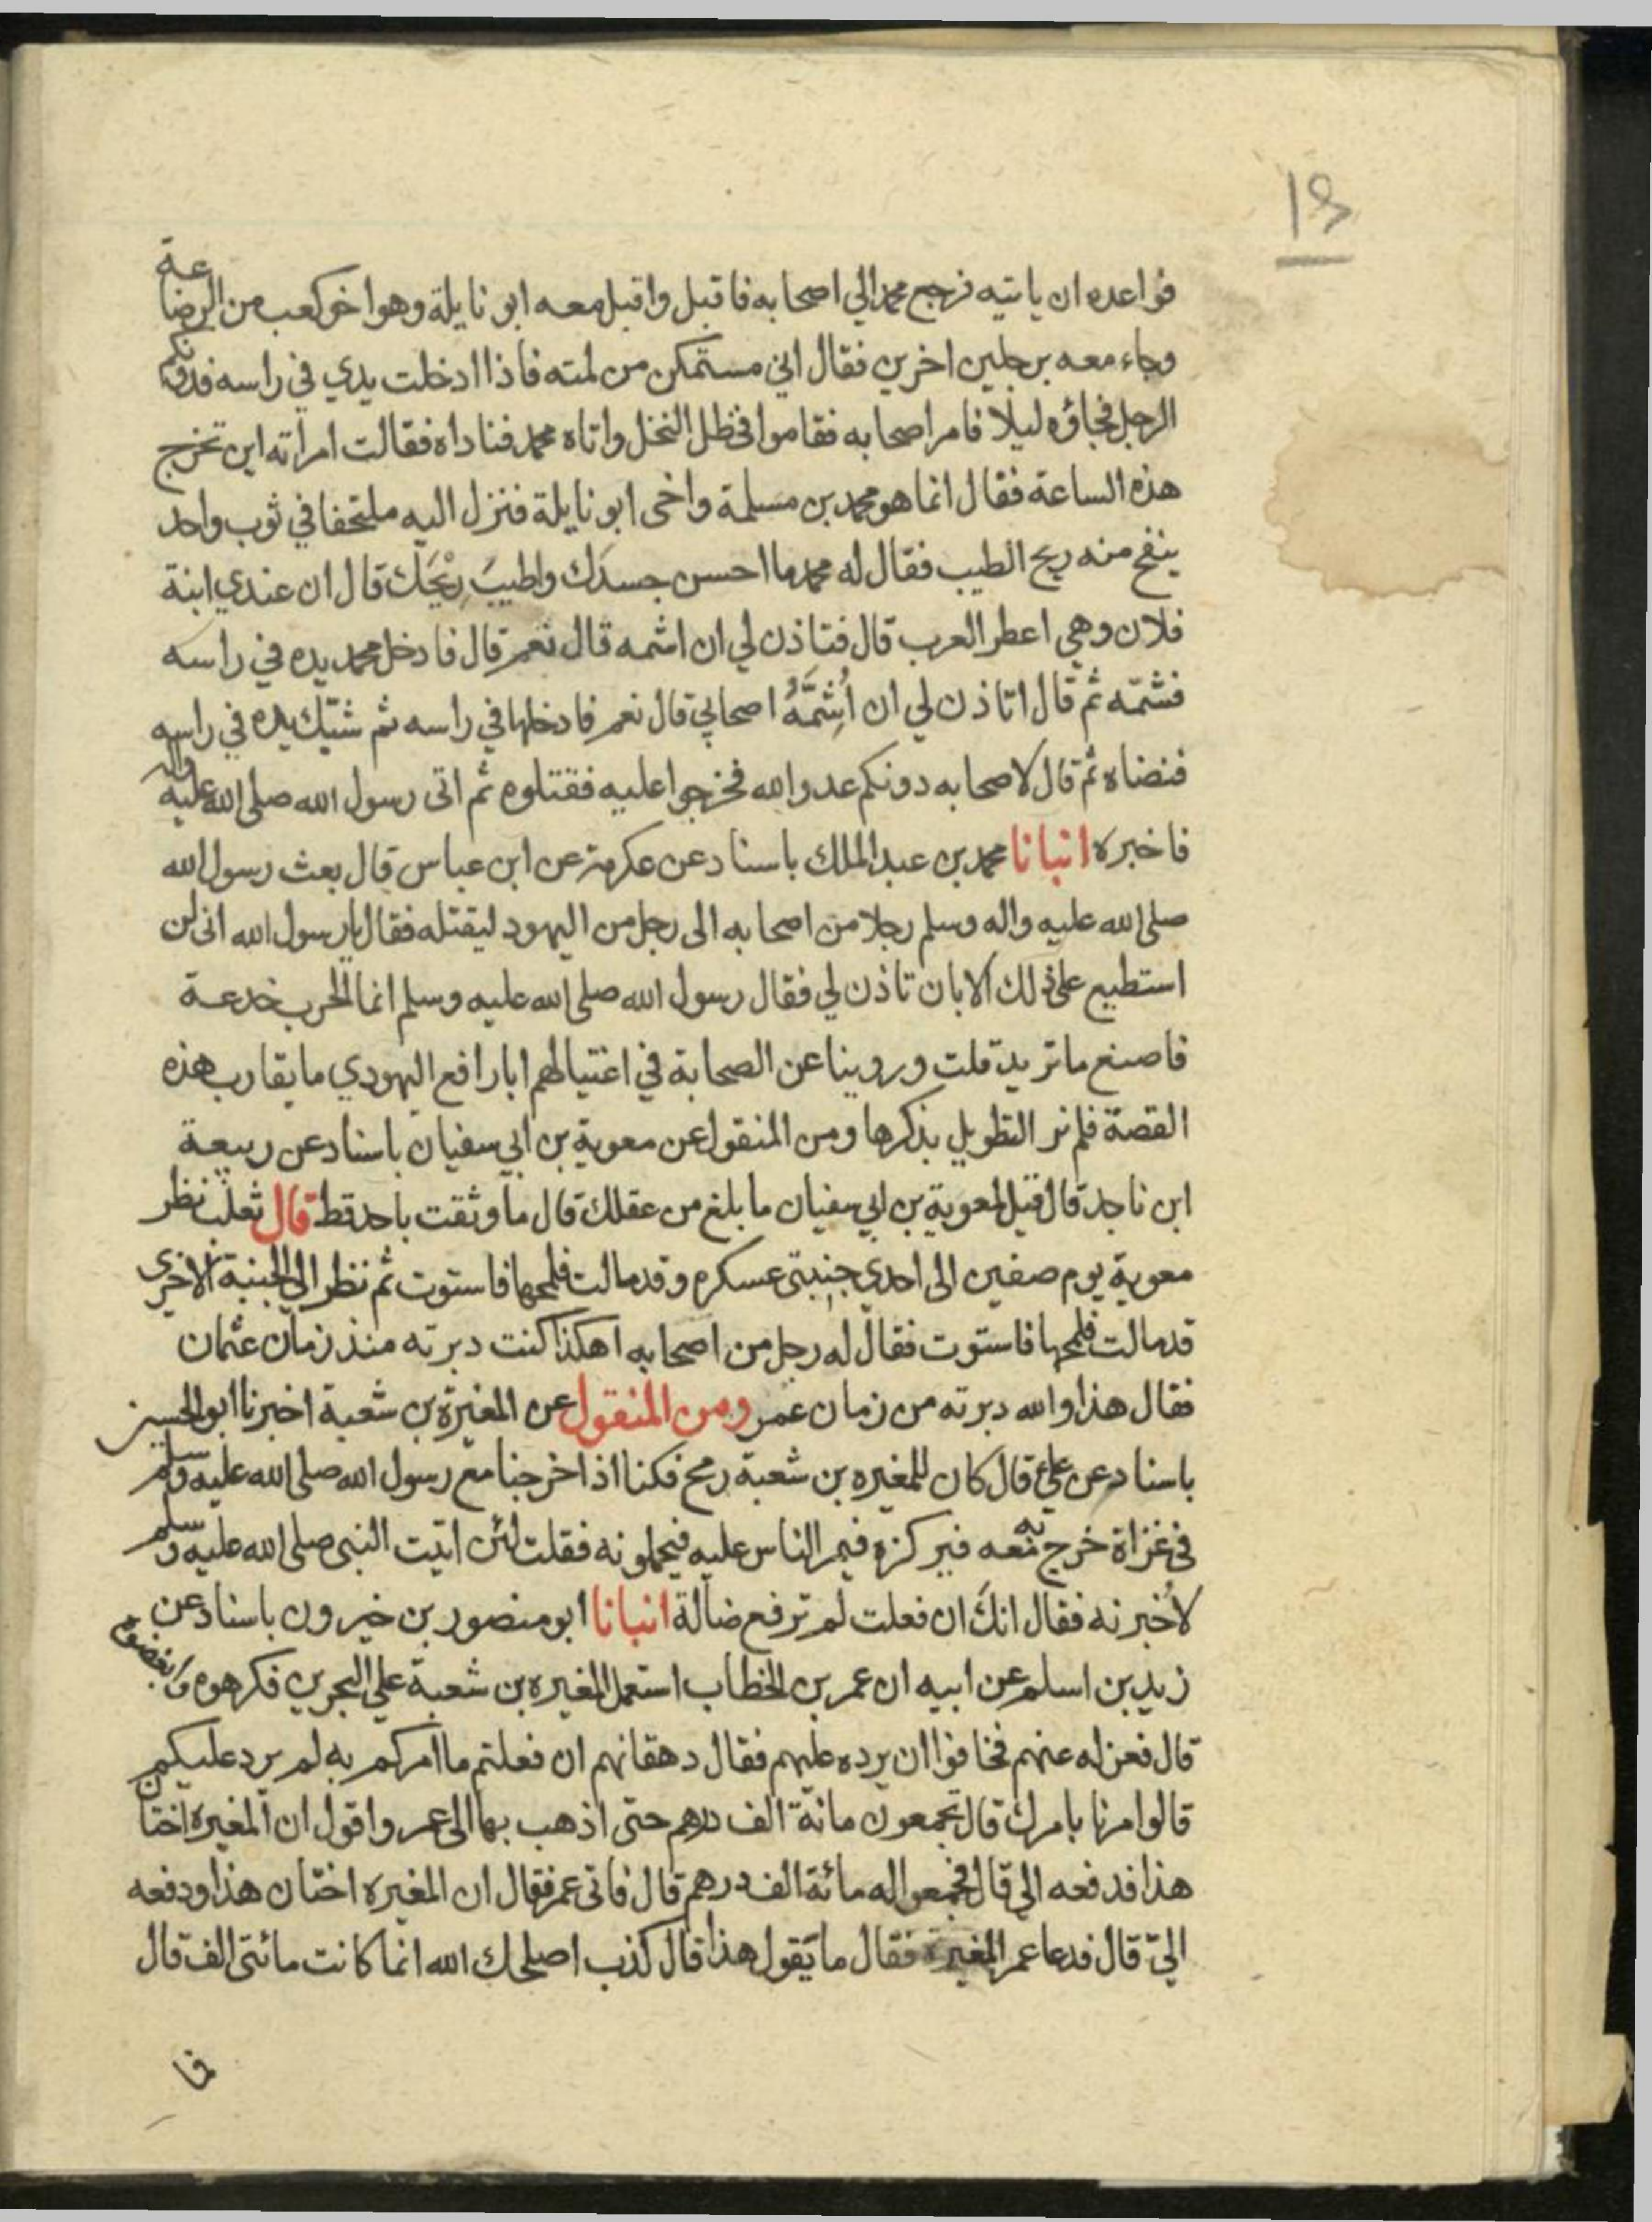 13
فواعده ان ياتيه فرجع محمد الي اصحابه فاقبل واقبل معه ابو نايلة وهو اخو كعب من الرضاعة
وجاء معه برجلين اخرين فقال اني مستمكن من لمته فاذا ادخلت يدي في راسه فدونكم
الرجل فجاؤه ليلا فامر اصحابه فقاموا في ظل النخل واتاه محمد فناداه فقالت امراته اين تخرج
هذه الساعة فقال انما هو محمد بن مسلمة واخى ابو نايلة فنزل اليه ملتحفا في ثوب واحد
ينفح منه ريح الطيب فقال له محمد ما احسن جسدَك واطيبَ رِيْحَك قال ان عندي ابنة
فلان وهي اعطر العرب قال فتاذن لي ان اشمه قال نعم قال فادخل محمد يده في راسه
فشمّه ثم قال اتاذن لي ان أُشِمَّهُ اصحابي قال نعم فادخلها في راسه ثم شبّك يده في راسه
فنضاه ثم قال لاصحابه دونكم عدو الله فخرجوا عليه فقتلوه ثم اتى رسول الله صلى الله عليه واله
فاخبره انبانا محمد بن عبد الملك باسناد عن عكرمة عن ابن عباس قال بعث رسول الله
صلى الله عليه واله وسلم رجلا من اصحابه الى رجل من اليهود ليقتله فقال يارسول الله انى لن
استطيع على ذلك الا بان تاذن لي فقال رسول الله صلى الله عليه وسلم انما الحرب خدعة
فاصنع ما تريد قلت وروينا عن الصحابة في اغتيالهم ابا رافع اليهودي ما يقارب هذه
القصة فلم نر التطويل بذكرها ومن المنقول عن معوية بن ابي سفيان باسناد عن ربيعة
ابن ناجد قال قيل لمعوية بن ابي سفيان ما بلغ من عقلك قال ما وثقت باحد قط قال ثعلب نظر
معوية يوم صفين الى احدي جنبتى عسكره وقد مالت فلمحها فاستوت ثم نظر الى الجنبة الاخرى
قد مالت فلمحها فاستوت فقال له رجل من اصحابه اهكذا كنت دبرته منذ زمان عثمان
فقال هذا والله دبرته من زمان عمر ومن المنقول عن المغيرة بن شعبة اخبرنا ابو الحسين
باسناد عن علي قال كان للمغيره بن شعبة رمح فكنا اذا خرجنا مع رسول الله صلى الله عليه وسلم
في غزاة خرج به معه فيركزه فيمر الناس عليه فيحملونه فقلت لئن اتيت النبى صلى الله عليه وسلم
لأخبرنه فقال انك ان فعلت لم ترفع ضالة انبانا ابو منصور بن خيرون باسناد عن
زيد بن اسلم عن ابيه ان عمر بن الخطاب استعمل المغيره بن شعبة على البحرين فكرهوه وابغضوه
قال فعزله عنهم فخافوا ان يرده عليهم فقال دهقانهم ان فعلتم ما امركم به لم يرد عليكم
قالوا مرنا بامرك قال تجمعون مائة الف درهم حتى اذهب بها الى عمر واقول ان المغيره اختان
هذا فدفعه الي قال فجمعوا له مائة الف درهم قال فاتى عمر فقال ان المغيره اختان هذا ودفعه
اليّ قال فدعا عمر المغيرة فقال ما يقول هذا قال كذب اصلحك الله انما كانت مائتى الف قال
فا